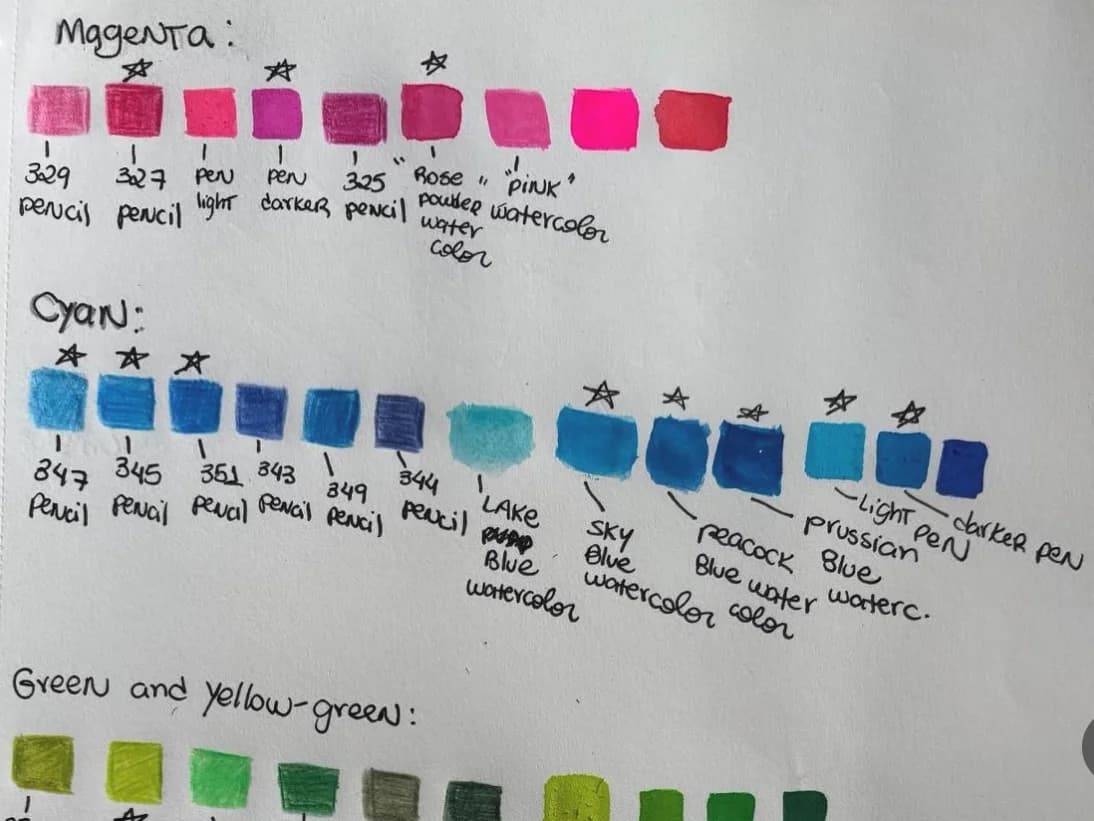 Magenta:
329 pencil
327 pencil
Pen light
Pen darker
325 pencil
"Rose" powder water color
"Pink" watercolor
Cyan:
347 Pencil
345 Pencil
351 Pencil
343 Pencil
349 Pencil
344 Pencil
LAKE Blue watercolor
SKY Blue watercolor
Peacock Blue water color
Prussian Blue waterc.
Light Pen
darker Pen
Green and Yellow-green: